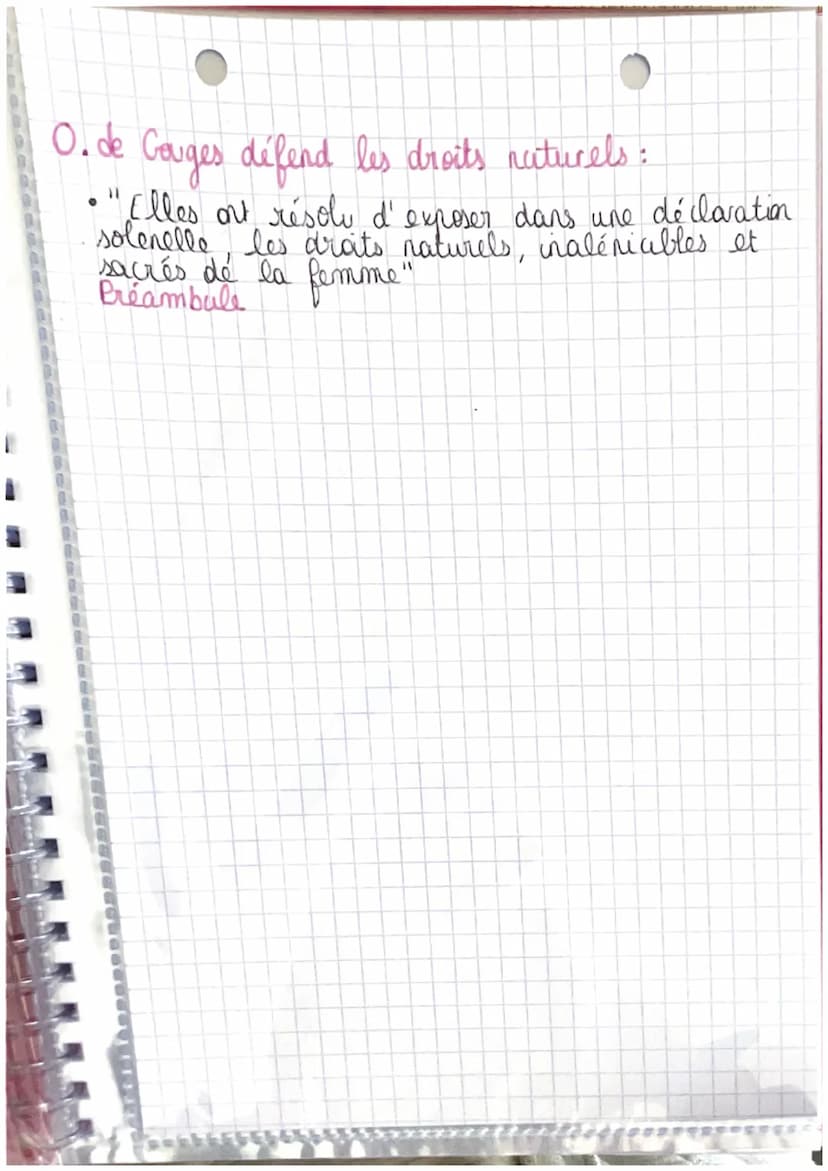 O. de Gouges défend les droits naturels :
• "Elles ont résolu d'exposer dans une déclaration
solenelle, les droits naturels, inaléniables et
sacrés de la femme"
Préambule